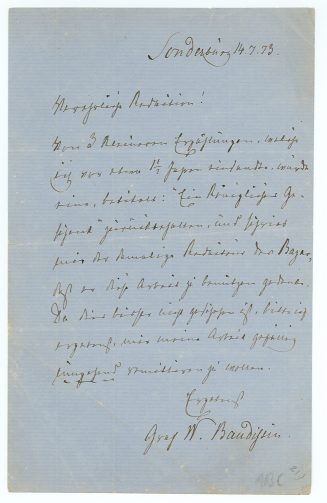 Sonderburg 14.7.73.
Verehrliche Redaktion!
Von 3 kleineren Erzählungen, welche
ich vor etwa 1½ Jahren einsandte, wurde
eine, betitelt: "Ein Königliches Ge-
schenk" zurückbehalten, und schrieb
mir der damalige Redakteur des Bazar,
daß er diese Arbeit zu benützen gedenke.
Da dies bisher nicht geschehen ist, bitte ich
ergebenst, mir meine Arbeit gefällig
umgehend remittieren zu wollen.
Ergebenst
Graf W. Baudissin.